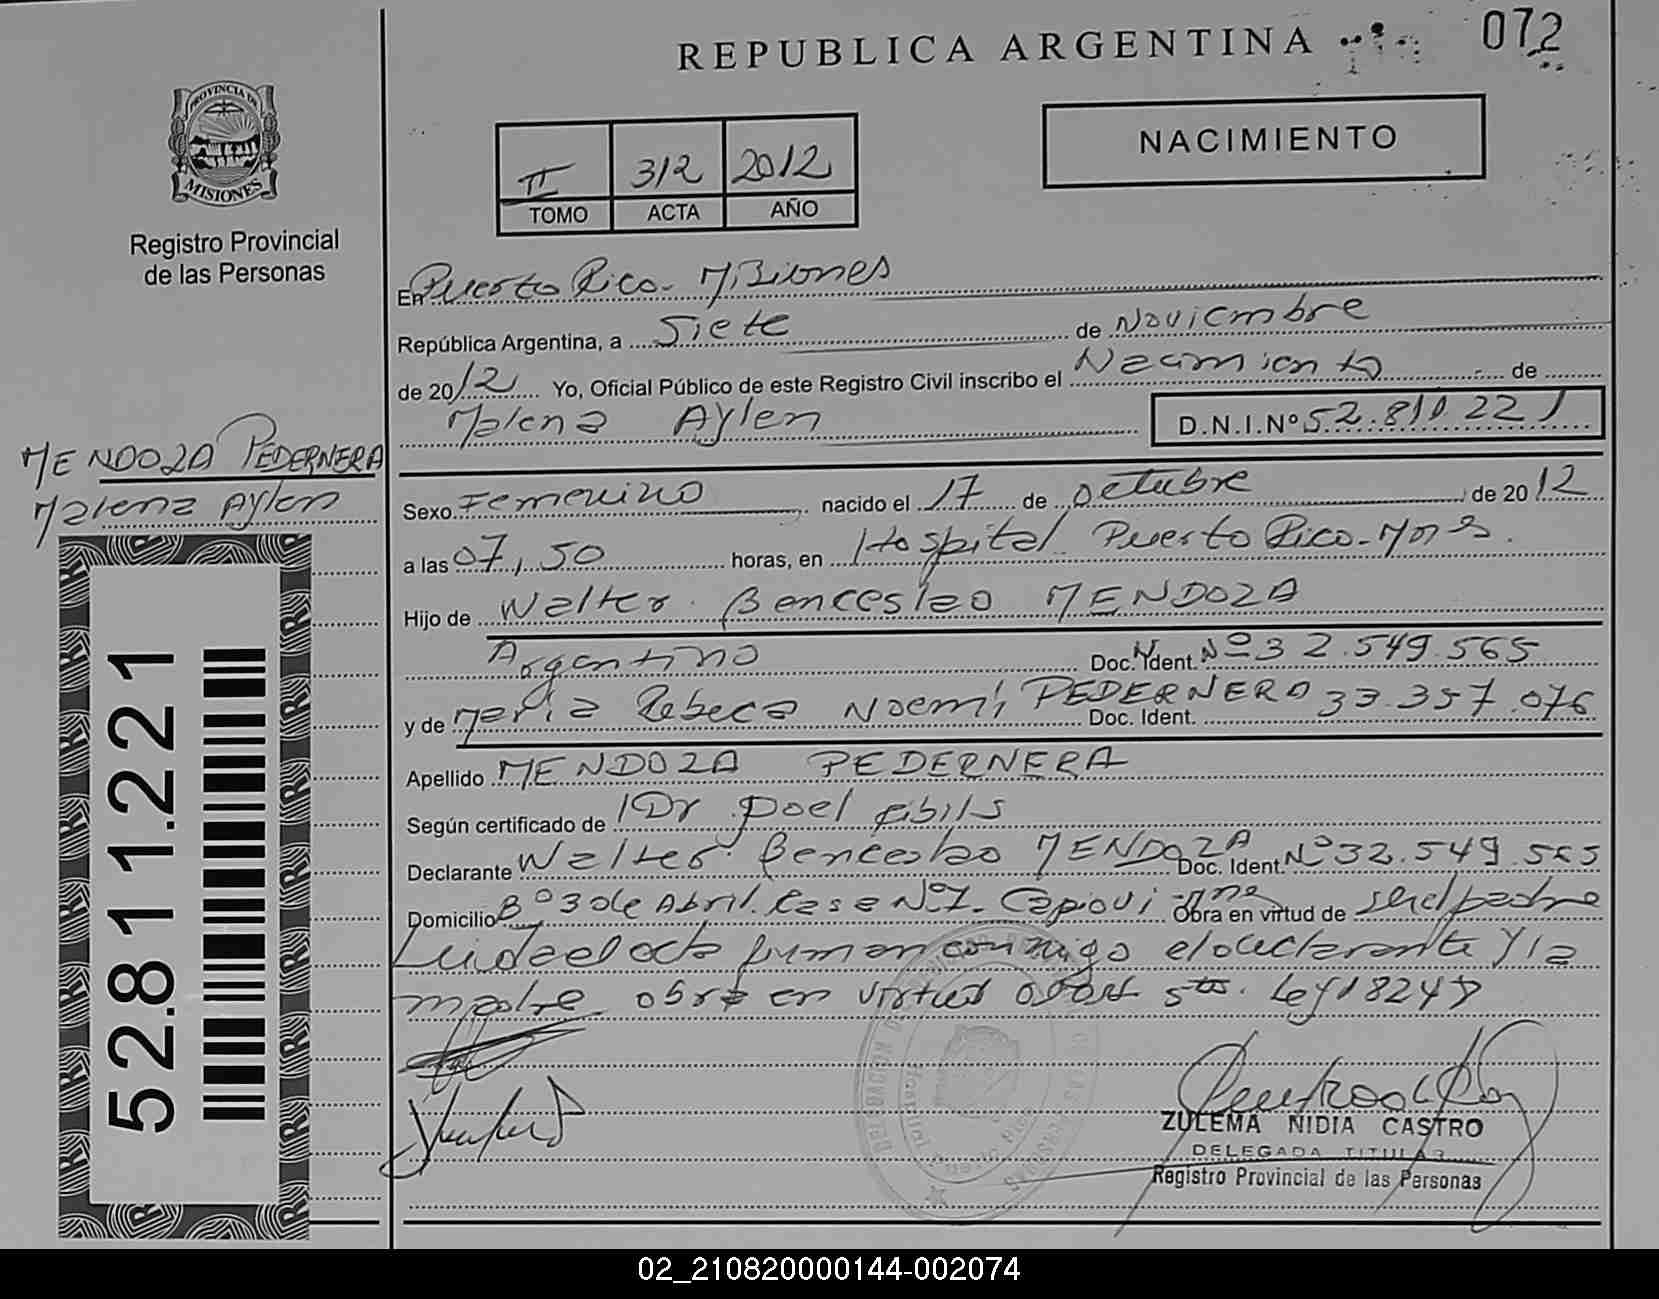 REPUBLICA ARGENTINA
072
PROVINCIA DE
MISIONES
Registro Provincial
de las Personas
NACIMIENTO
II 312 2012
TOMO ACTA AÑO
En Puerto Rico - Misiones
República Argentina, a Siete de Noviembre
de 2012 Yo, Oficial Público de este Registro Civil inscribo el Nacimiento de
Malena Aylen D.N.I.Nº 52.811.221
MENDOZA PEDERNERA
Malena Aylen
Sexo Femenino nacido el 17 de octubre de 2012
a las 07,50 horas, en Hospital Puerto Rico - Mnes.
Hijo de Walter Benceslao MENDOZA
Argentino Doc. Ident. Nº 32.549.565
y de María Rebeca Noemí PEDERNERA Doc. Ident. 33.357.076
Apellido MENDOZA PEDERNERA
Según certificado de Dr
Declarante Walter Benceslao MENDOZA Doc. Ident. Nº 32.549.565
Domicilio Bº 3 de Abril. Casa Nº 7. Capioví Mnes Obra en virtud de ser el padre
Leida el acta firman conmigo el declarante y la
madre obra en virtud Ley 18248
52.811.221
ZULEMA NIDIA CASTRO
DELEGADA TITULAR
Registro Provincial de las Personas
02_210820000144-002074